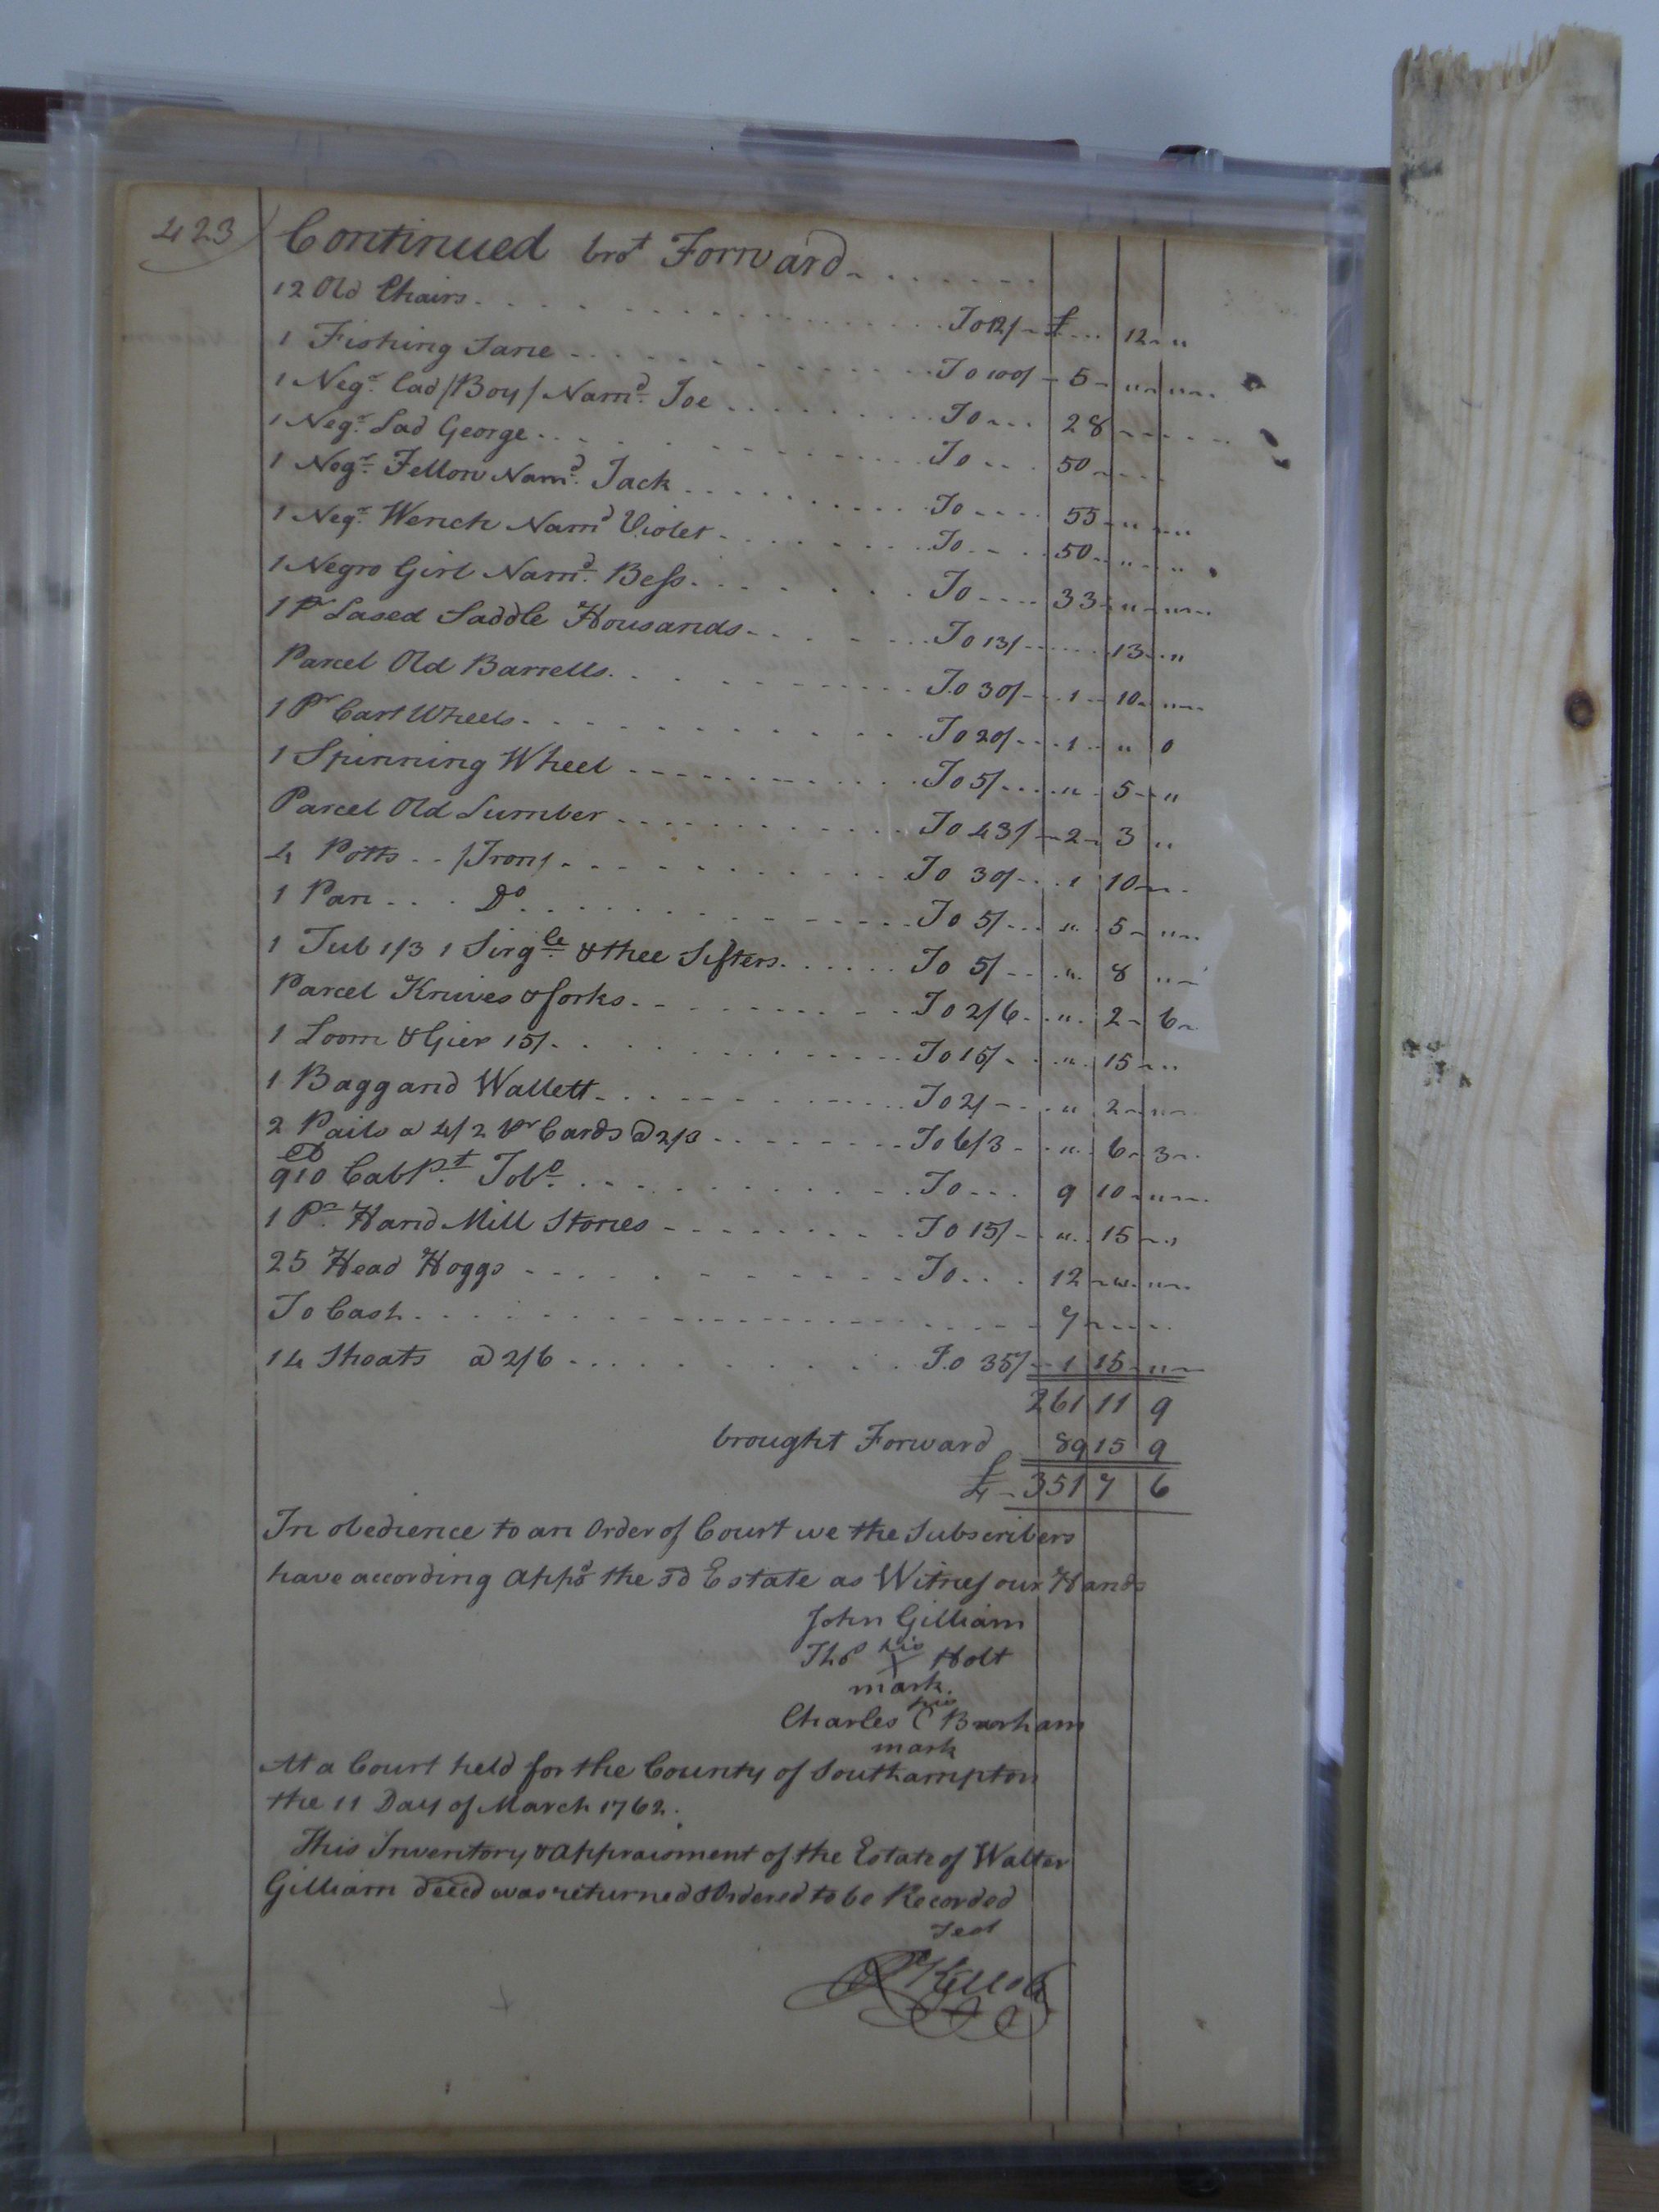 423
Continued bro.t Forward
12 Old Chairs To 12/ £ 12 "
1 Fishing Sane To 100/ 5 " "
1 Neg.r Lad /Boy/ Nam.d Joe To 28
1 Neg.r Lad George To 50
1 Neg.r Fellow Nam.d Jack To 55 " "
1 Neg.r Wench Nam.d Violet To 50 " "
1 Negro Girl Nam.d Bess To 33 " "
1 P.r Lased Saddle Housands To 13/ 13 "
Parcel Old Barrells To 30/ 1 10 "
1 P.r Cart Wheels To 20/ 1 " 0
1 Spinning Wheel To 5/ " 5 "
Parcel Old Lumber To 43/ 2 3 "
4 Potts /Iron/ To 30/ 1 10
1 Pan D.o To 5/ " 5 "
1 Tub 1/3 1 Sing.le & thee Sifters To 5/ " 8 "
Parcel Knives & forks To 2/6 " 2 6
1 Loom & Gier 15/ To 15/ " 15 "
1 Bagg and Wallett To 2/ " 2 "
2 Pails a 4/ 2 P.r Cards @ 2/3 To 6/3 " 6 3
910 Tob.o To 9 10 "
1 P.r Hand Mill Stones To 15/ " 15 "
25 Head Hoggs To 12 " "
To Cash 7
14 Shoats @ 2/6 To 35/ 1 15 "
261 11 9
brought Forward 89 15 9
£ 351 7 6
In obedience to an Order of Court we the Subscribers
have according App.d the s.d Estate as Witness our Hands
John Gilliam
Tho.s his X Holt
mark.
Charles his C Barham
mark
At a Court held for the County of Southampton
the 11 Day of March 1762.
This Inventory & Appraisment of the Estate of Walter
Gilliam deced was returned & Ordered to be Recorded
Test
R.d Kello